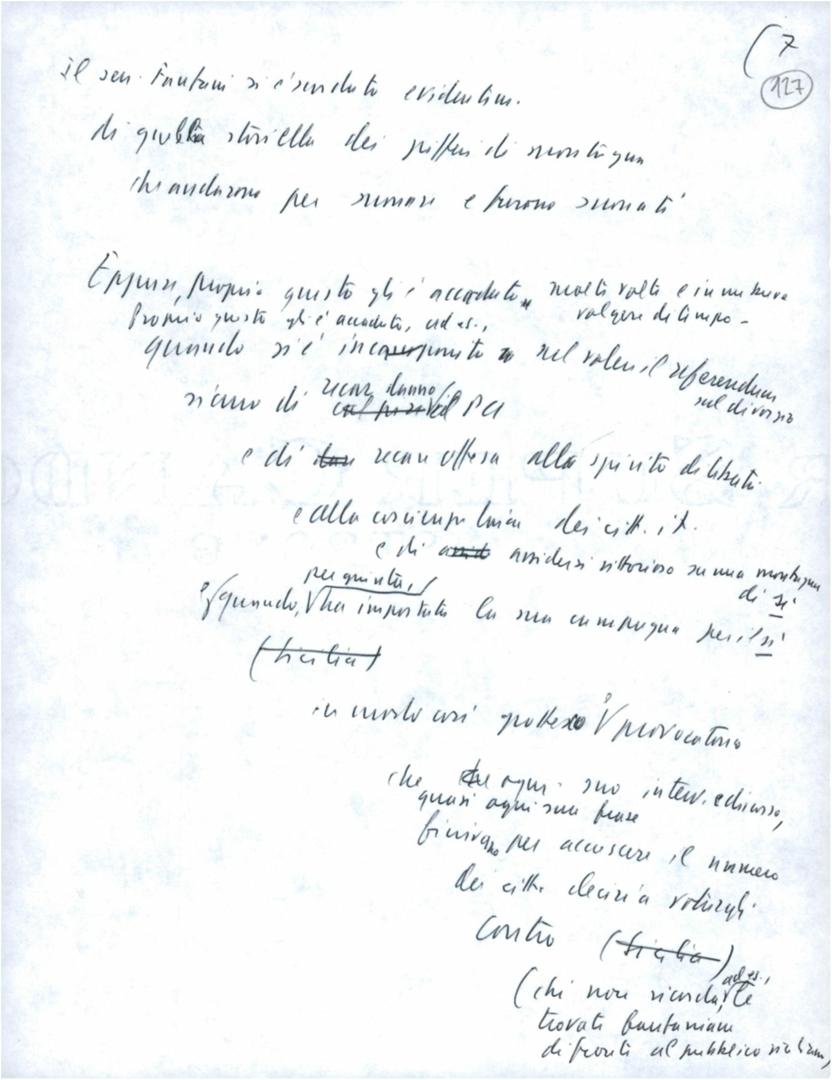 (7
127
Il sen. Fanfani si è scordato evidentem.
di quella storiella dei pifferi di montagna
che andarono per suonare e furono suonati
Eppure, proprio questo gli è accaduto, molte volte e in un breve
volgere di tempo -
Proprio questo gli è accaduto, ad es.,
quando si è incaponito nel volere il referendum
sul divorzio
sicuro di recar danno al PCI
e di recare offesa allo spirito di libertà
e alla coscienza laica dei citt. it.
e di assidersi vittorioso su una montagna
di sì
e quando, per giunta, ha impostato la sua campagna per il sì
(Sicilia)
in modo così grottesco e provocatorio
che ogni suo interv. e discorso,
quasi ogni sua frase
finivano per accrescere il numero
dei citt. decisi a votargli
contro (Sicilia)
(chi non ricorda, ad es., le
trovate fanfaniane
di fronte al pubblico siciliano,